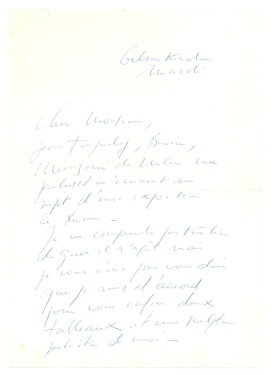 Gelsenkirchen
Mardi
Cher Monsieur,
Jean Tinguely, Bern,
Manzoni de Milan me
parlent et m'écrivent au
sujet d'une exposition
à Berne –
Je ne comprends pas très bien
de quoi il s'agit mais
je vous écris pour vous dire
que je suis d'accord
pour vous confier deux
tableaux et une sculpture
petite de moi –